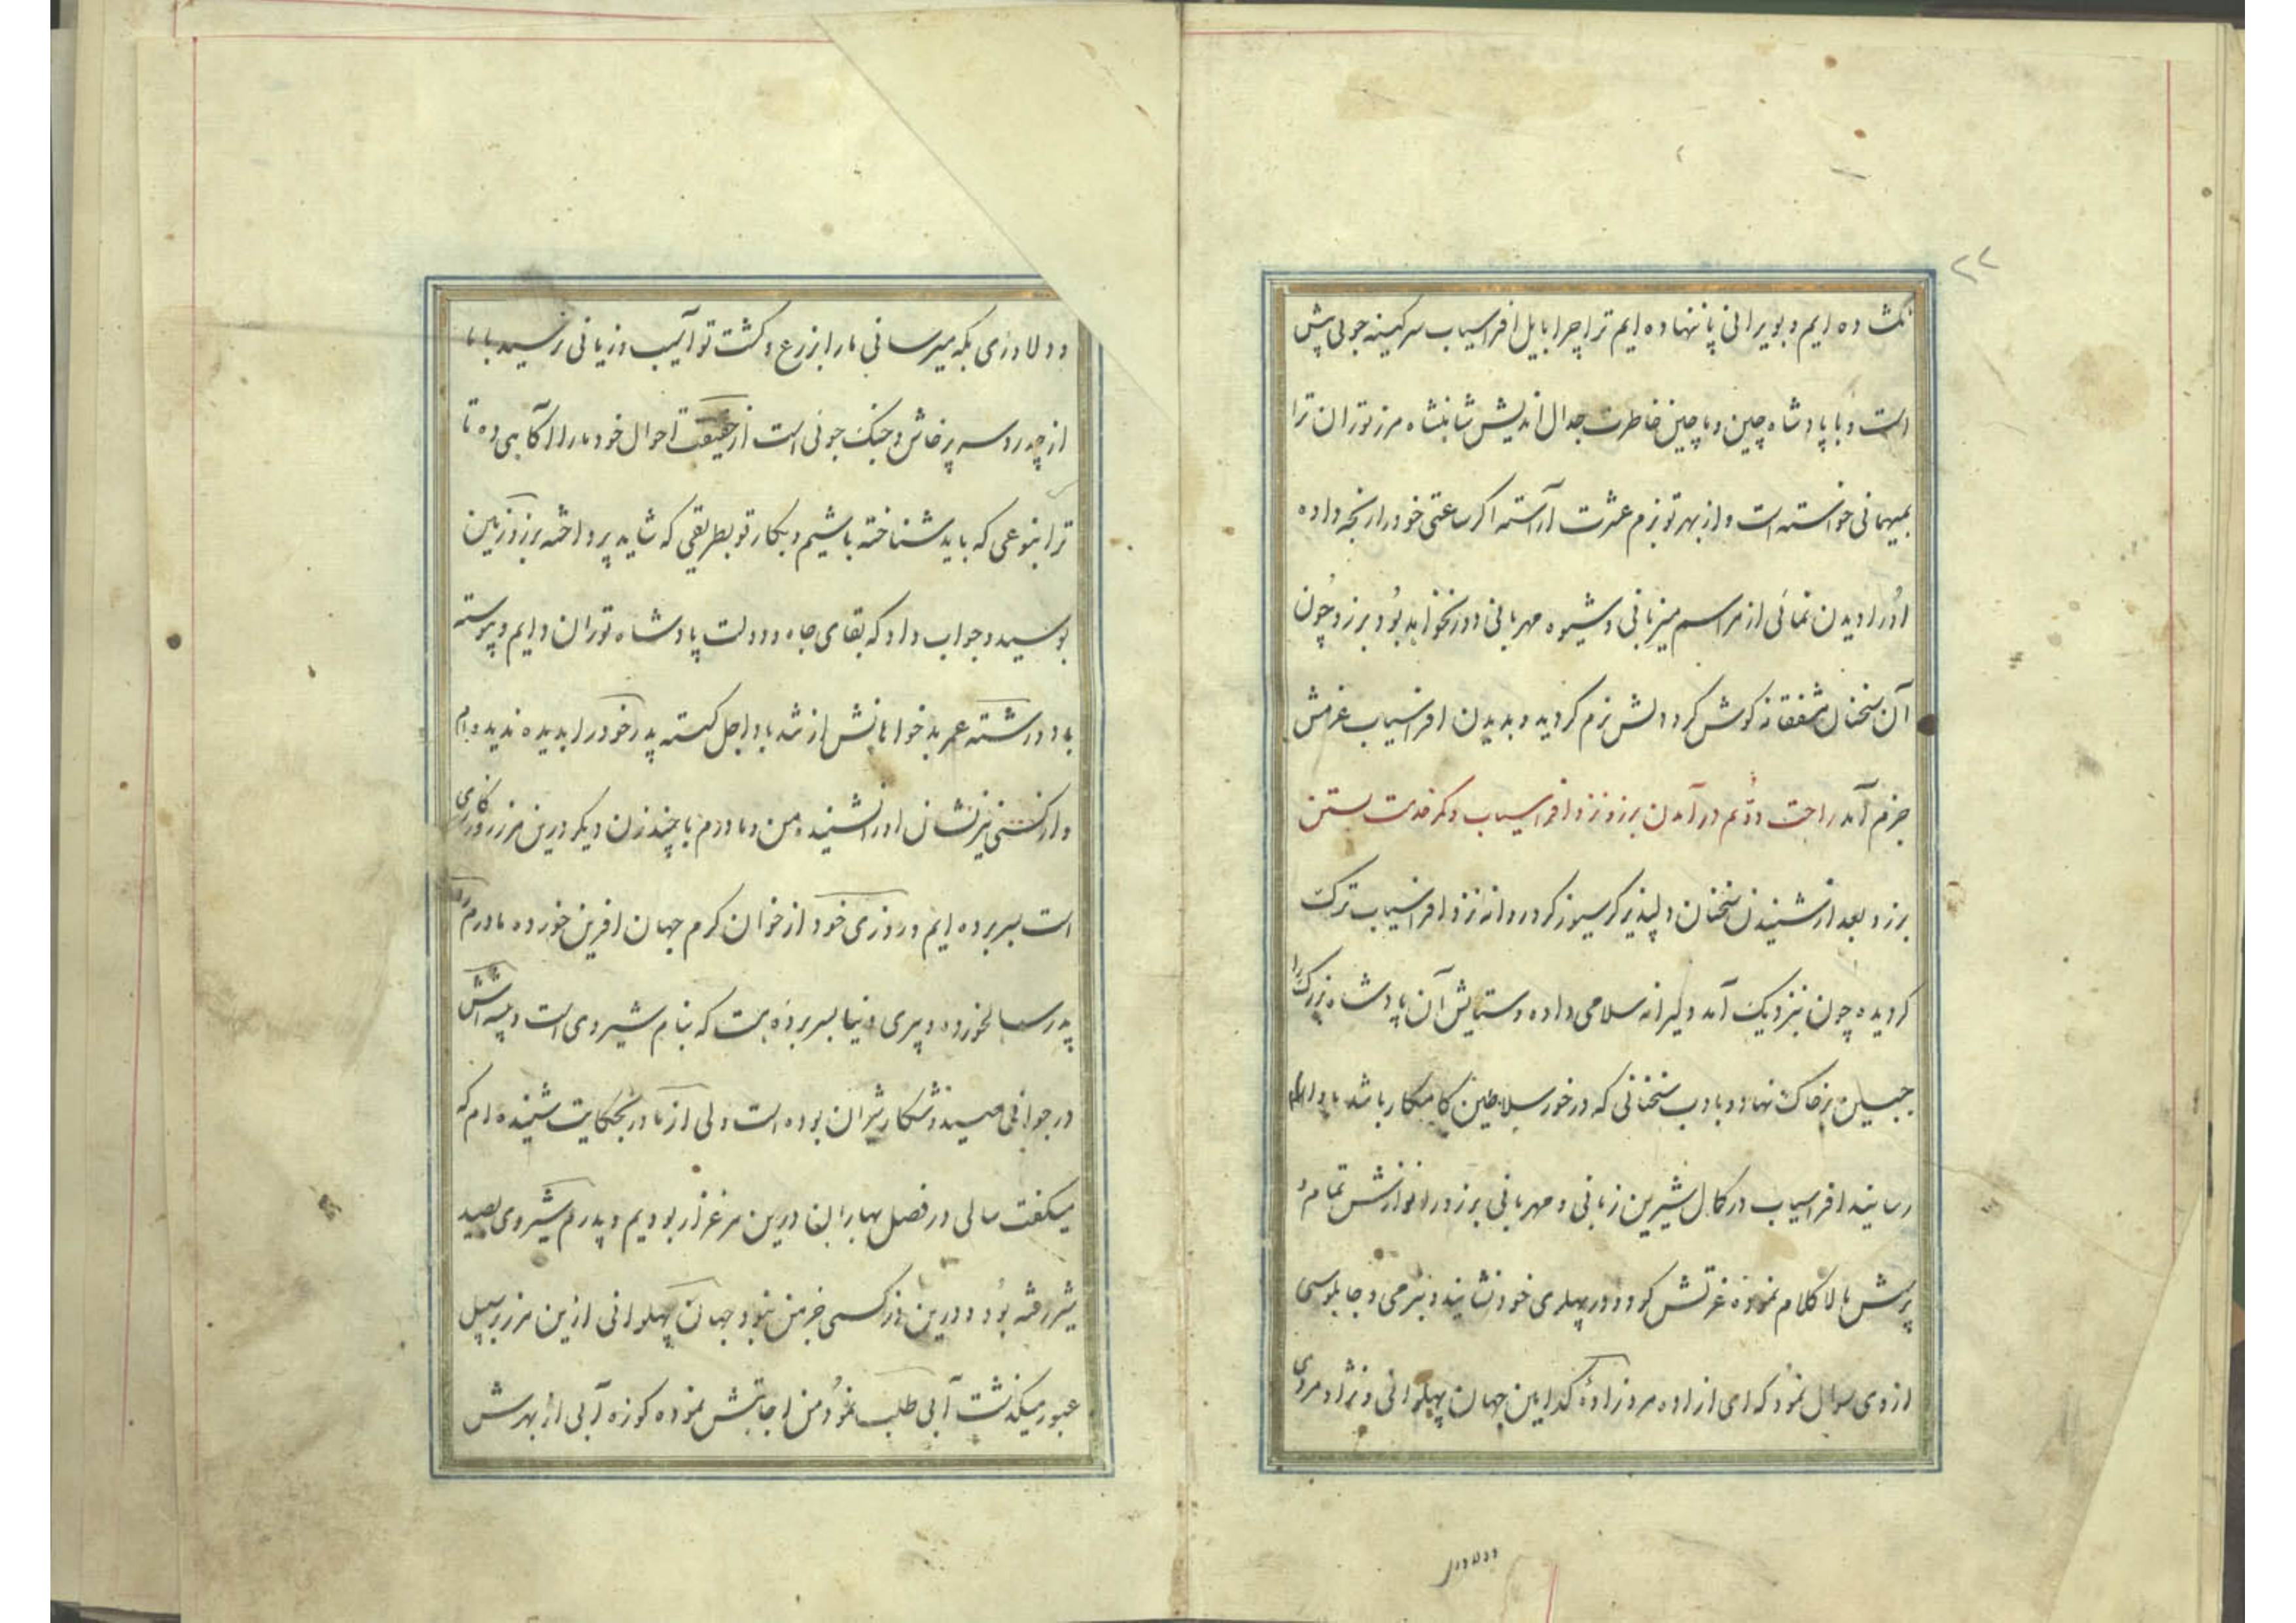 ۲۲
نکشاده ایم و بویرانی پا ننهاده ایم ترا چرا بایل افراسیاب سر کینه جوئی پیش
است و با پادشاه چین و ماچین خاطرت جدال اندیش شاهنشاه مرز توران ترا
بمیهمانی خواسته است و از بهر تو بزم عشرت آراسته اگر ساعتی خود را رنجه داده
او را دیدن نمائی از مراسم میزبانی و شیوه مهربانی دور نخواهد بود برزو چون
آن سخنان مشفقانه گوش کرد دلش نرم گردید و بدیدن افراسیاب عزمش
جزم آمد راحت دوم در آمدن برزو نزد افراسیاب و کمر خدمت بستن
برزو بعد از شنیدن سخنان دلپذیر گرسیوز گرد روانه نزد افراسیاب ترک
گردیده چون نزدیک آمد دلیرانه سلامی داده و ستایش آن پادشاه بزرگ را
جبین بر خاک نهاد و بادب سخنانی که در خور سلاطین کامکار باشد بادا
رسانید افراسیاب در کمال شیرین زبانی و مهربانی برزو را نوازش تمام و
پرسش بالا کلام نموده عزتش کرد و در پهلوی خود نشانید و بنرمی و چاپلوسی
از وی سوال نمود که ای ازاده مرد زادهٔ کدامین جهان پهلوانی و نژاد مردی
دو لاوری
و دلاوری بکه میرسانی ما را از زرع و کشت تو آسیب و زیانی نرسید با ما
از چه رو سر پرخاش و جنگ جوئی است از حقیقت احوال خود ما را آگاهی ده تا
ترا بنوعی که باید شناخته باشیم و بکار تو بطریقی که شاید پرداخته برزو زمین
بوسید و جواب داد که بقای جاه و دولت پادشاه توران دایم و پیوسته
باد و رشته عمر بدخواهانش از شد باد اجل گسسته پدر خود را بدیده ندیده ام
و از کسی نیز نشان او را نشنیده من و مادرم با چند زن دیگر درین مرز روزگاری
است بسر برده ایم و روزی خود از خوان کرم جهان افرین خورده مادرم را
پدر سالخورده و پیری دنیا بسر برده است که بنام شیروی است و پیشه اش
در جوانی صید و شکار شیران بوده است ولی از مادر بحکایت شنیده ام که
میگفت سالی در فصل بهاران درین مرغزار بودیم و پدرم شیروی بصید
شیر رفته بود و درین مرز کسی جز من نبود جهان پهلوانی ازین مرز بر سبیل
عبور میگذشت آبی طلب نمود من اجابتش نموده کوزه آبی از بهرش